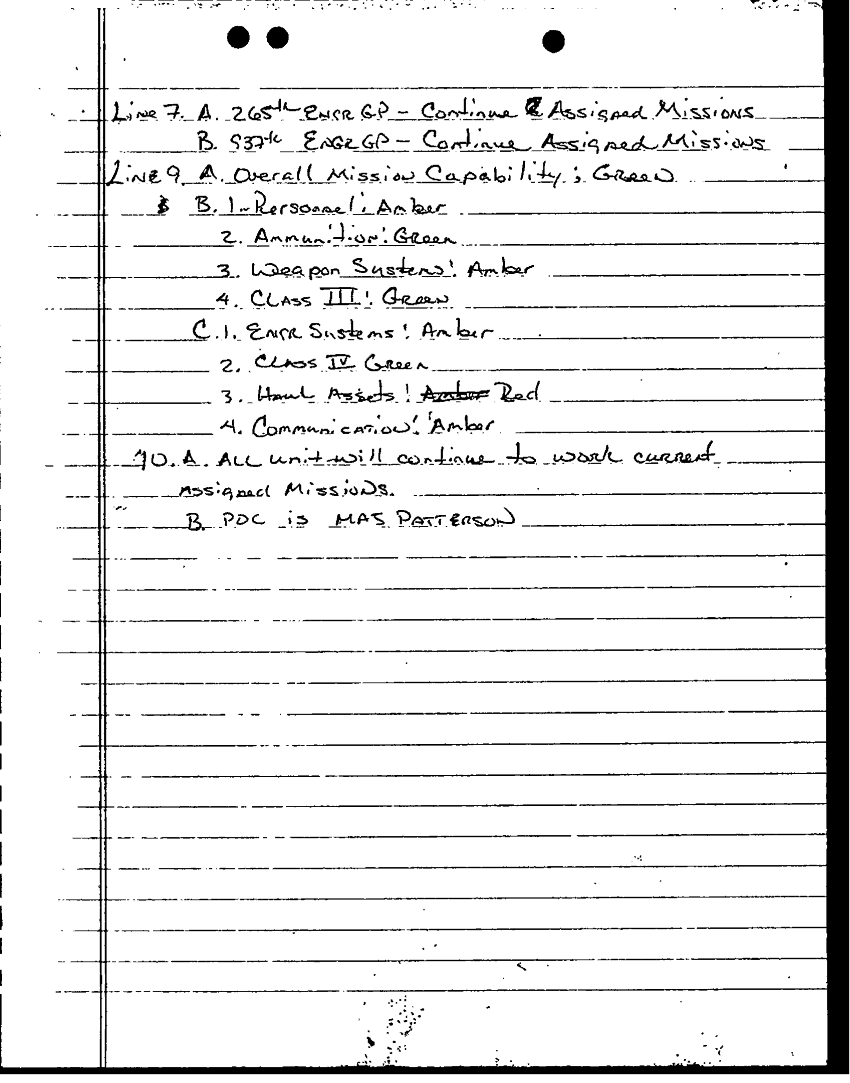 Line 7. A. 265th ENGR GP - Continue Assigned Missions
B. 937th ENGR GP - Continue Assigned Missions
Line 9 A. Overall Mission Capability; Green
B. 1. Personnel: Amber
2. Ammunition: Green
3. Weapon Systems: Amber
4. CLASS III: Green
C. 1. ENGR Systems: Amber
2. CLASS IV Green
3. Haul Assets: Amber Red
4. Communication: Amber
10. A. ALL unit will continue to work current
Assigned Missions.
B. POC is MAJ PATTERSON